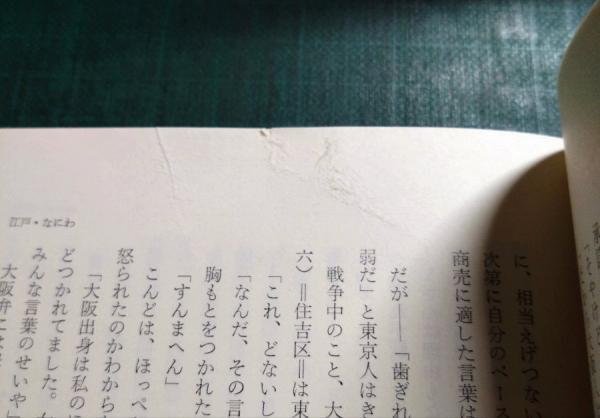 江戸・なにわ
に、相当えげつな
次第に自分のペース
商売に適した言葉は
だが――「歯ぎれ
弱だ」と東京人はき
戦争中のこと、大
六）＝住吉区＝は東
「これ、どないし
「なんだ、その言
胸もとをつかれた
「すんまへん」
こんどは、ほっぺ
怒られたのかわから
「大阪出身は私の
どつかれてました。
みんな言葉のせいや」
大阪弁には